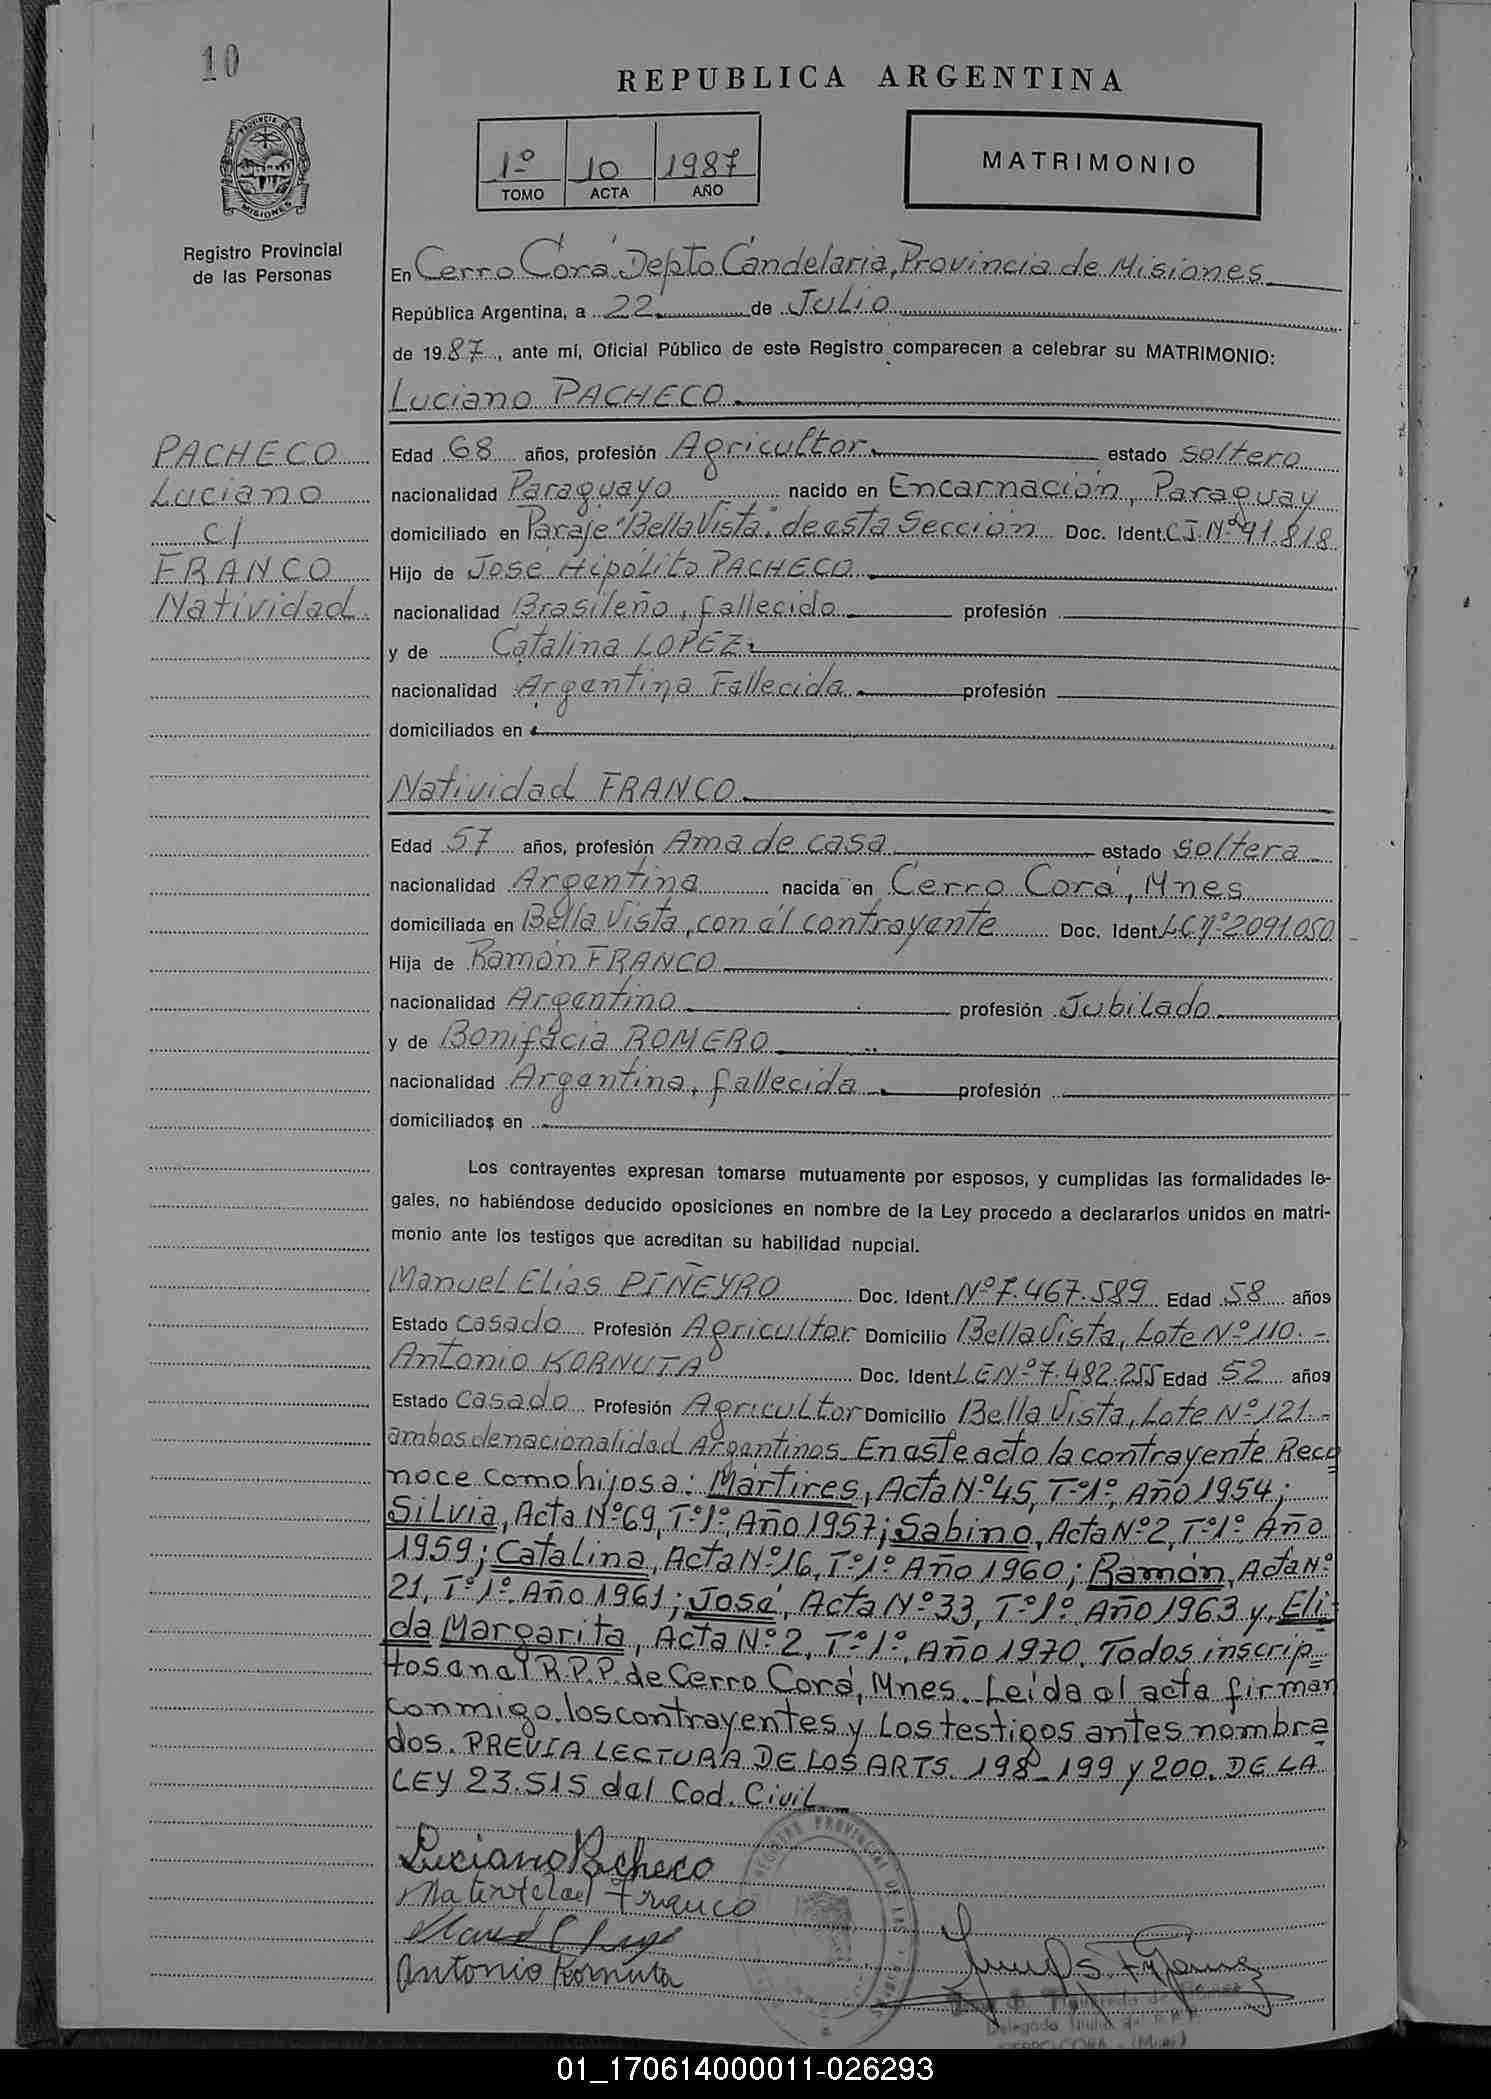 10
REPUBLICA ARGENTINA
PROVINCIA DE
MISIONES
1º 10 1987
TOMO ACTA AÑO
MATRIMONIO
Registro Provincial
de las Personas
En Cerro Corá Depto Candelaria, Provincia de Misiones
República Argentina, a 22 de Julio
de 1987, ante mí, Oficial Público de este Registro comparecen a celebrar su MATRIMONIO:
Luciano PACHECO
PACHECO
Luciano
c/
FRANCO
Natividad
Edad 68 años, profesión Agricultor estado soltero
nacionalidad Paraguayo nacido en Encarnación, Paraguay
domiciliado en Paraje "Bella Vista" de esta Sección Doc. Ident. C.I. Nº 91.818
Hijo de José Hipólito PACHECO
nacionalidad Brasileño, fallecido profesión
y de Catalina LOPEZ
nacionalidad Argentina Fallecida profesión
domiciliados en
Natividad FRANCO
Edad 57 años, profesión Ama de casa estado soltera
nacionalidad Argentina nacida en Cerro Corá, Mnes
domiciliada en Bella Vista, con él contrayente Doc. Ident. L.C Nº 2091.050
Hija de Ramón FRANCO
nacionalidad Argentino profesión Jubilado
y de Bonifacia ROMERO
nacionalidad Argentina, fallecida profesión
domiciliados en
Los contrayentes expresan tomarse mutuamente por esposos, y cumplidas las formalidades le-
gales, no habiéndose deducido oposiciones en nombre de la Ley procedo a declararlos unidos en matri-
monio ante los testigos que acreditan su habilidad nupcial.
Manuel Elías PIÑEYRO Doc. Ident. Nº 7.467.589 Edad 58 años
Estado casado Profesión Agricultor Domicilio Bella Vista, Lote Nº 110.-
Antonio KORNUTA Doc. Ident L.E Nº 7.482.255 Edad 52 años
Estado casado Profesión Agricultor Domicilio Bella Vista, Lote Nº 121.-
ambos de nacionalidad Argentinos. En este acto la contrayente Reco=
noce como hijos a: Mártires, Acta Nº 45, Tº 1º, Año 1954;
Silvia, Acta Nº 69, Tº 1º, Año 1957; Sabino, Acta Nº 2, Tº 1º Año
1959; Catalina, Acta Nº 16, Tº 1º Año 1960; Ramón, Acta Nº
21, Tº 1º Año 1961; José, Acta Nº 33, Tº 1º Año 1963 y Eli=
da Margarita, Acta Nº 2, Tº 1º, Año 1970. Todos inscrip=
tos en el R.P.P. de Cerro Corá, Mnes. Leída el acta firman
conmigo los contrayentes y los testigos antes nombra
dos. PREVIA LECTURA DE LOS ARTS. 198_199 y 200. DE LA
LEY 23.515 del Cod. Civil.
Luciano Pacheco
Natividad Franco
Antonio Kornuta
REGISTRO PROVINCIAL DE LAS
01_170614000011-026293